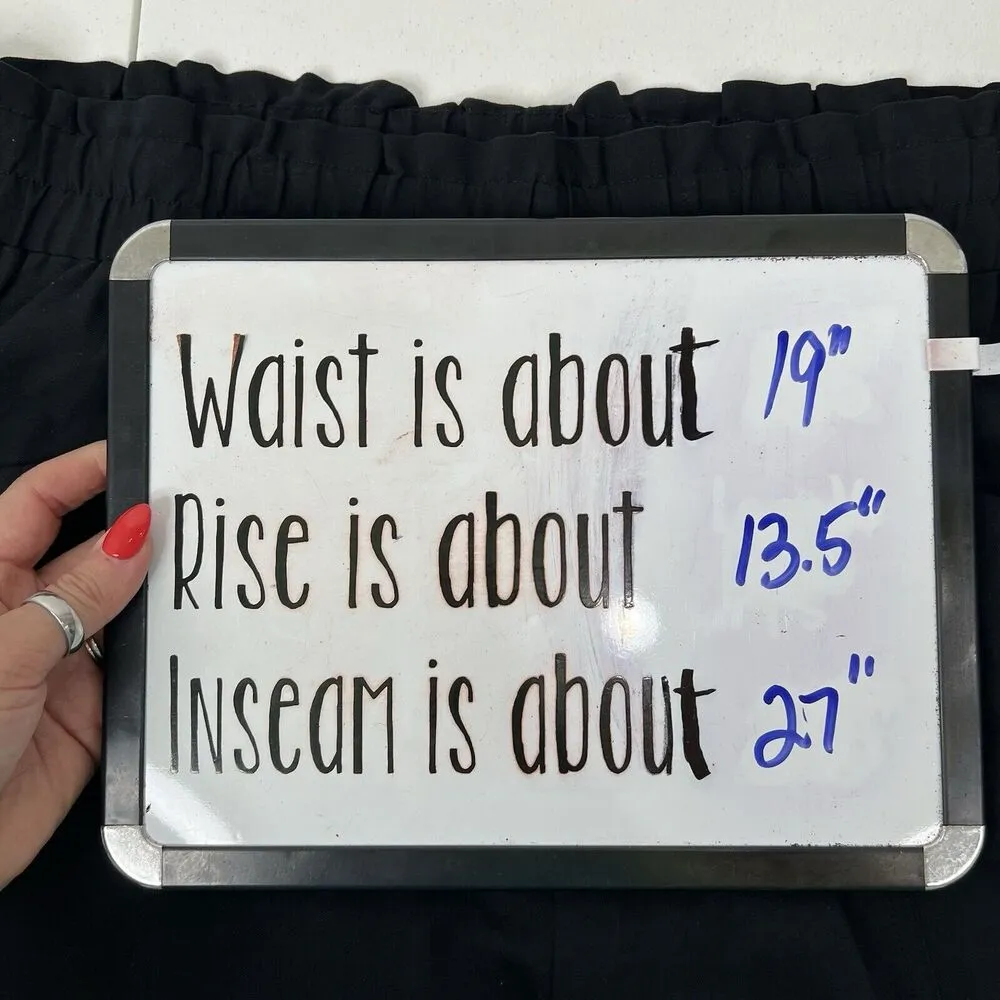 Waist is about 19"
Rise is about 13.5"
Inseam is about 27"